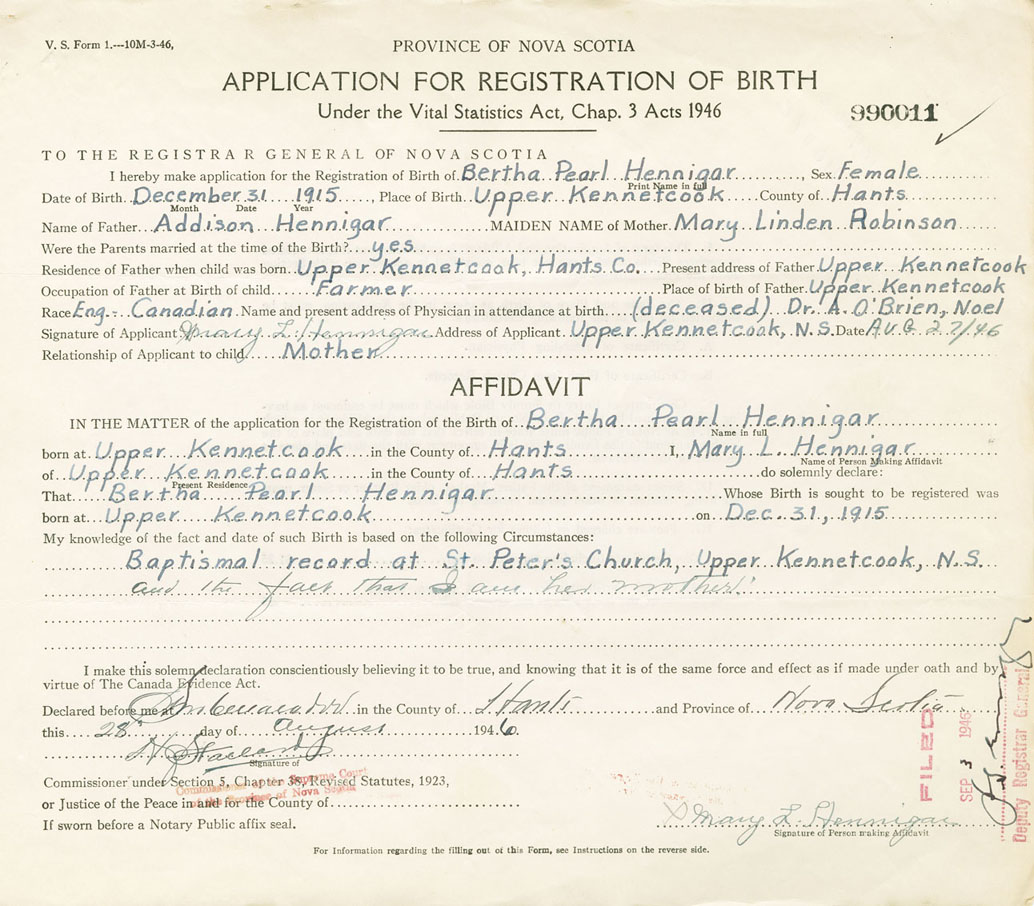 V. S. Form 1.---10M-3-46,
PROVINCE OF NOVA SCOTIA
APPLICATION FOR REGISTRATION OF BIRTH
Under the Vital Statistics Act, Chap. 3 Acts 1946
990011
TO THE REGISTRAR GENERAL OF NOVA SCOTIA
I hereby make application for the Registration of Birth of Bertha Pearl Hennigar, Sex Female
Print Name in full
Date of Birth December 31 1915, Place of Birth Upper Kennetcook County of Hants
Month Date Year
Name of Father Addison Hennigar MAIDEN NAME of Mother Mary Linden Robinson
Were the Parents married at the time of the Birth? yes
Residence of Father when child was born Upper Kennetcook, Hants Co. Present address of Father Upper Kennetcook
Occupation of Father at Birth of child Farmer Place of birth of Father Upper Kennetcook
Race Eng.- Canadian Name and present address of Physician in attendance at birth (deceased) Dr. A. O'Brien, Noel
Signature of Applicant Mary L. Hennigar Address of Applicant Upper Kennetcook, N.S. Date AUG 27/46
Relationship of Applicant to child Mother
AFFIDAVIT
IN THE MATTER of the application for the Registration of the Birth of Bertha Pearl Hennigar
Name in full
born at Upper Kennetcook in the County of Hants I, Mary L. Hennigar
Name of Person Making Affidavit
of Upper Kennetcook in the County of Hants do solemnly declare:
Present Residence
That Bertha Pearl Hennigar Whose Birth is sought to be registered was
born at Upper Kennetcook on Dec. 31, 1915
My knowledge of the fact and date of such Birth is based on the following Circumstances:
Baptismal record at St. Peter's Church, Upper Kennetcook, N.S.
and the fact that I am her mother.
I make this solemn declaration conscientiously believing it to be true, and knowing that it is of the same force and effect as if made under oath and by
virtue of The Canada Evidence Act.
Declared before me at in the County of Hants and Province of Nova Scotia
this 28 day of August 1946
Signature of
Commissioner under Section 5, Chapter 38, Revised Statutes, 1923,
Commissioner of the Supreme Court
of the Province of Nova Scotia
or Justice of the Peace in and for the County of
If sworn before a Notary Public affix seal.
X Mary L. Hennigar
Signature of Person making Affidavit
FILED
SEP 3 1946
Deputy Registrar General
For Information regarding the filling out of this Form, see Instructions on the reverse side.